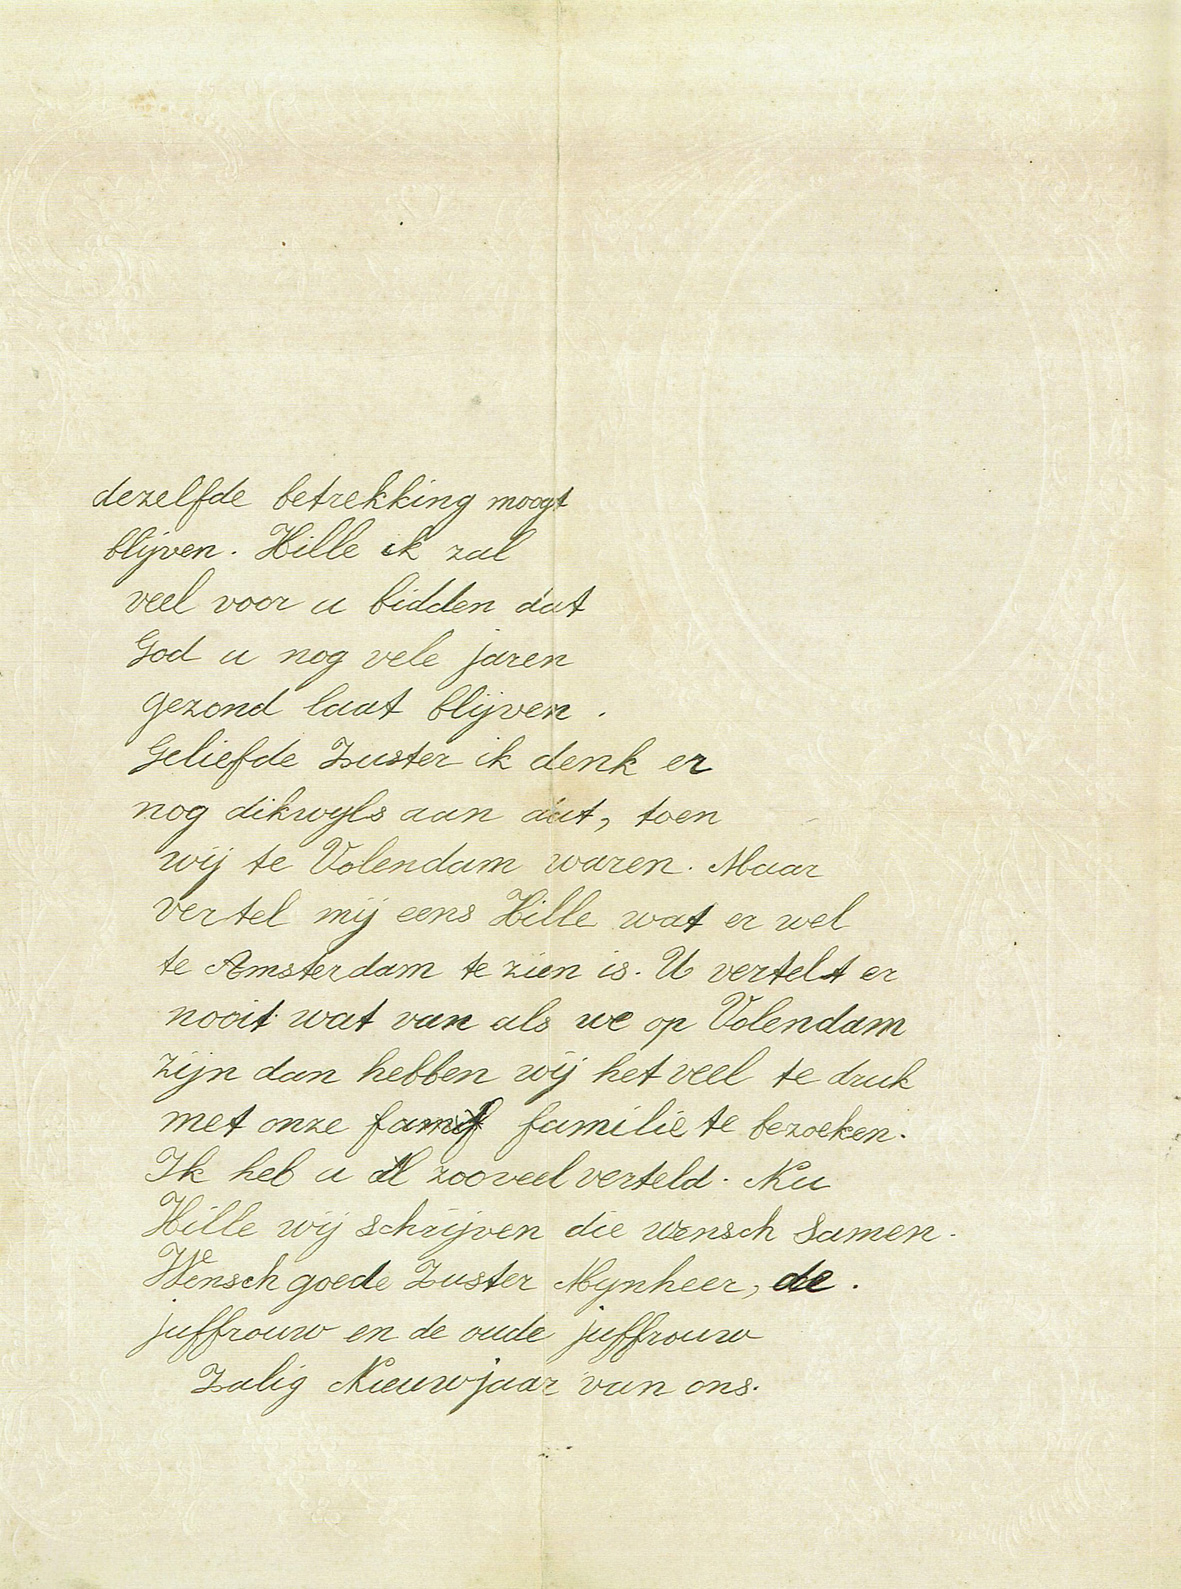 dezelfde betrekking moogt
blijven. Hille ik zal
veel voor u bidden dat
God u nog vele jaren
gezond laat blijven.
Geliefde Zuster ik denk er
nog dikwyls aan dat, toen
wij te Volendam waren. Maar
vertel mij eens Hille wat er wel
te Amsterdam te zien is. U vertelt er
nooit wat van als we op Volendam
zijn dan hebben wij het veel te druk
met onze familie te bezoeken.
Ik heb u al zooveel verteld. Nu
Hille wij schrijven die wensch samen.
Wensch goede Zuster Mynheer, de.
juffrouw en de oude juffrouw
Zalig Nieuwjaar van ons.